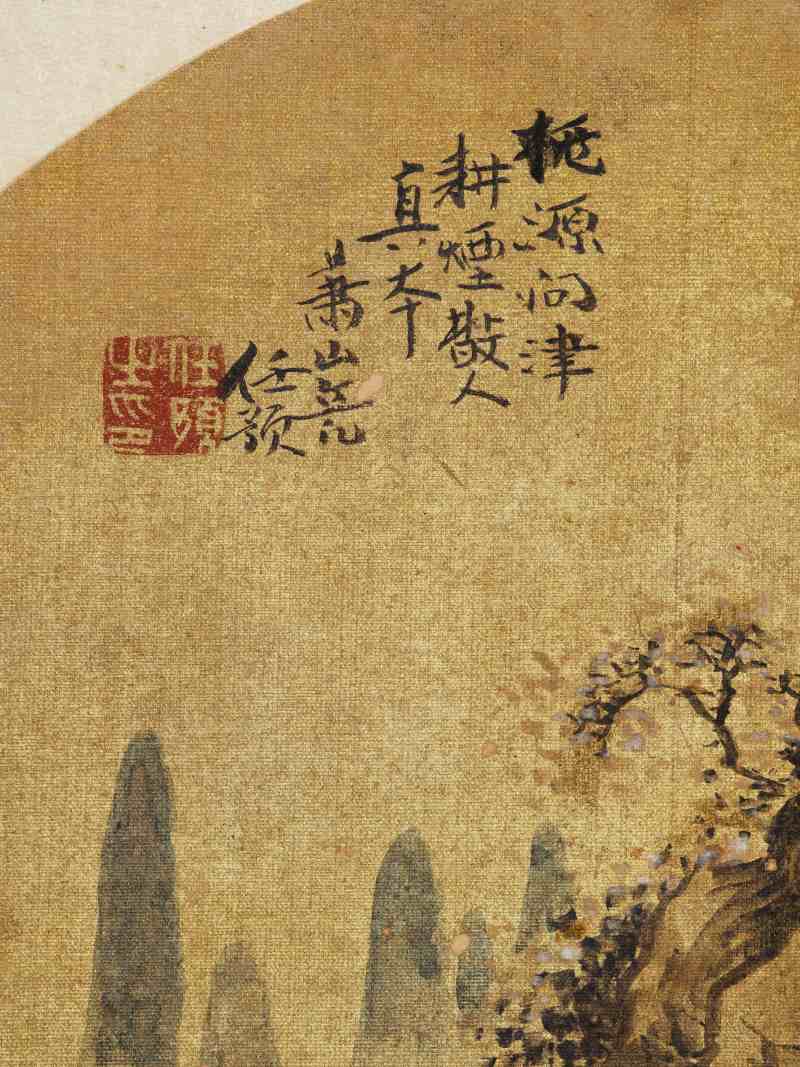 桃源問津
耕煙散人
真本
蕭山
任頤
任頤